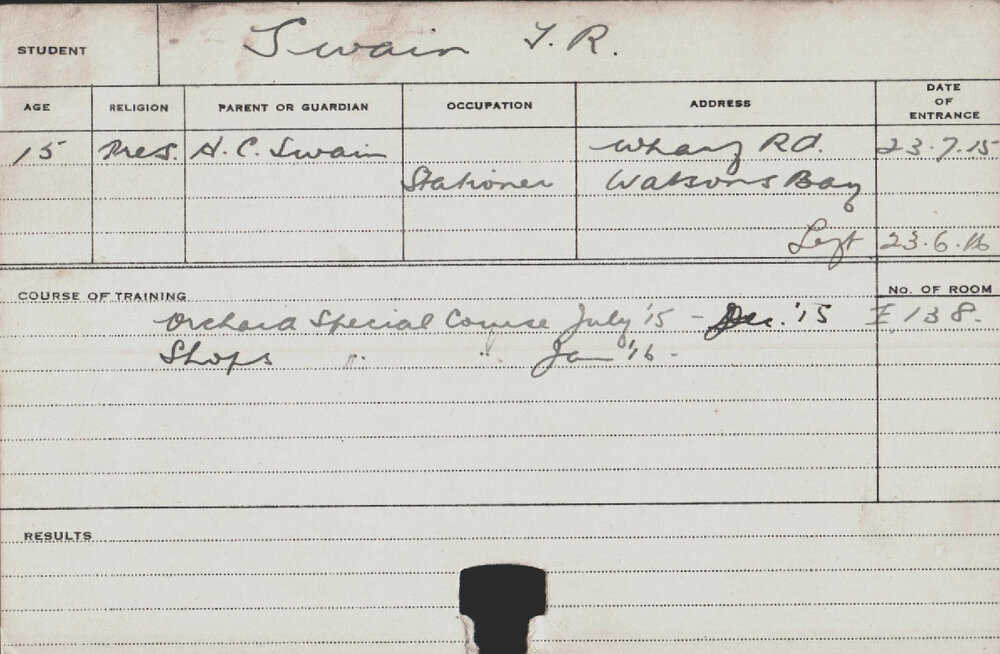 STUDENT Swain T. R.
AGE RELIGION PARENT OR GUARDIAN OCCUPATION ADDRESS DATE OF ENTRANCE
15 Pres. H. C. Swain Wharf Rd. 23.7.15
Stationer Watsons Bay
Left 23.6.16
COURSE OF TRAINING No. OF ROOM
Orchard Special Course July '15 - Dec. '15 E 138-
Shops " " Jan '16 -
RESULTS